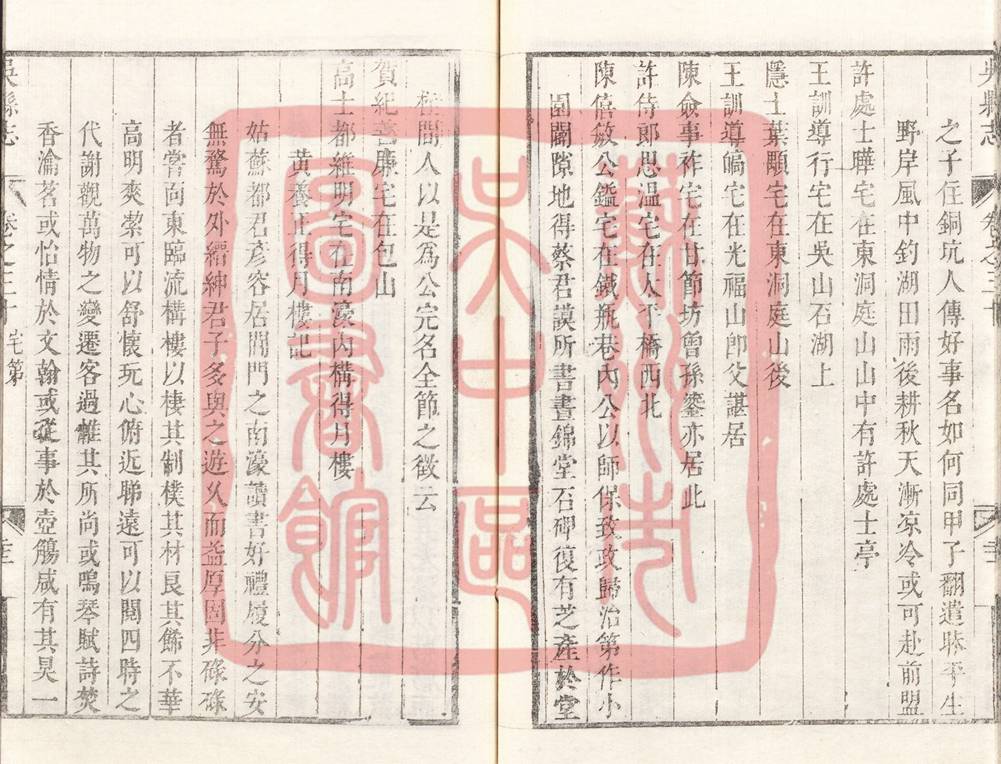 吳縣志 卷之三十
之子住銅坑人傳好事名如何同甲子翻遣眛平生
野岸風中釣湖田雨後耕秋天漸凉冷或可赴前盟
許處士曄宅在東洞庭山山中有許處士亭
王訓導行宅在吳山石湖上
隱士葉顒宅在東洞庭山後
王訓導皜宅在光福山卽父諶居
陳僉事祚宅在甘節坊曾孫鎏亦居此
許侍郎思溫宅在太平橋西北
陳僖敏公鎰宅在鐵瓶巷內公以師保致政歸治第作小
園闢隙地得蔡君謨所書晝錦堂石碑復有芝產於堂
柱間人以是爲公完名全節之徵云
賀紀善廉宅在包山
高士都維明宅在南濠內構得月樓
黃養正得月樓記
姑蘇都君彥容居閶門之南濠讀書好禮履分之安
無騖於外縉紳君子多與之遊久而益厚固非碌碌
者嘗向東臨流構樓以棲其制樸其材良其餙不華
高明爽潔可以舒懷玩心俯近睇遠可以閱四時之
代謝觀萬物之變遷客過惟其所尚或鳴琴賦詩焚
香瀹茗或怡情於文翰或從事於壺觴咸有其具一
吳縣志 卷之三十 宅第
蘇州市
吳中區
圖書館